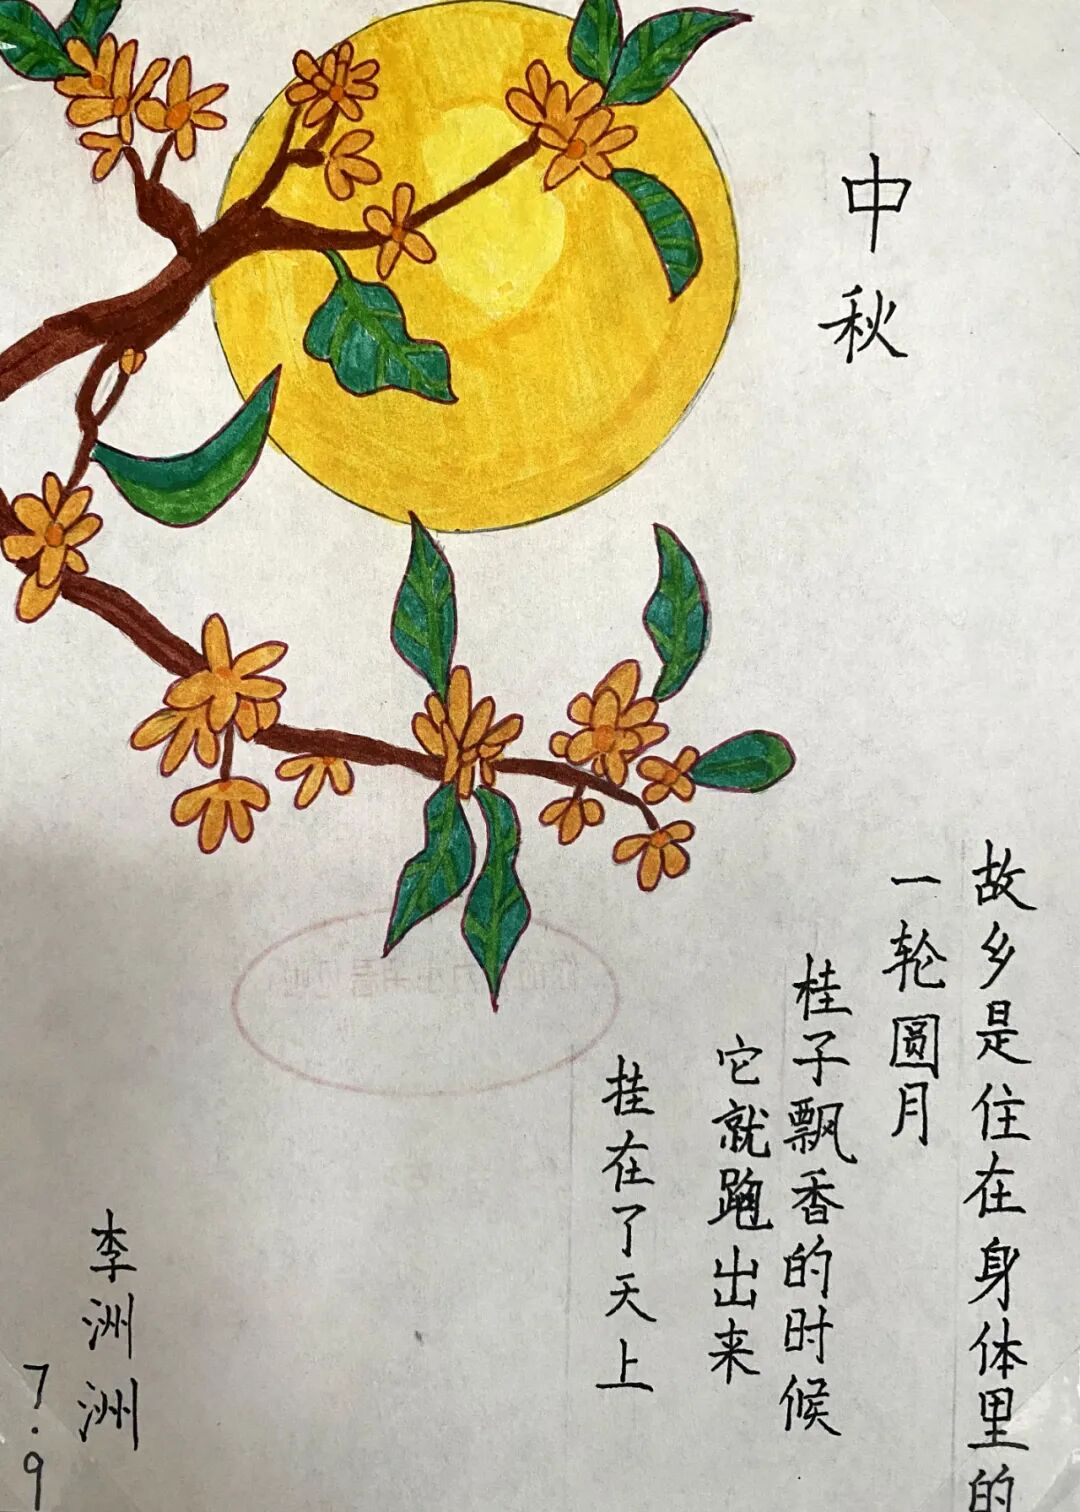 中秋
故乡是住在身体里的
一轮圆月
桂子飘香的时候
它就跑出来
挂在了天上
李洲洲
7.9